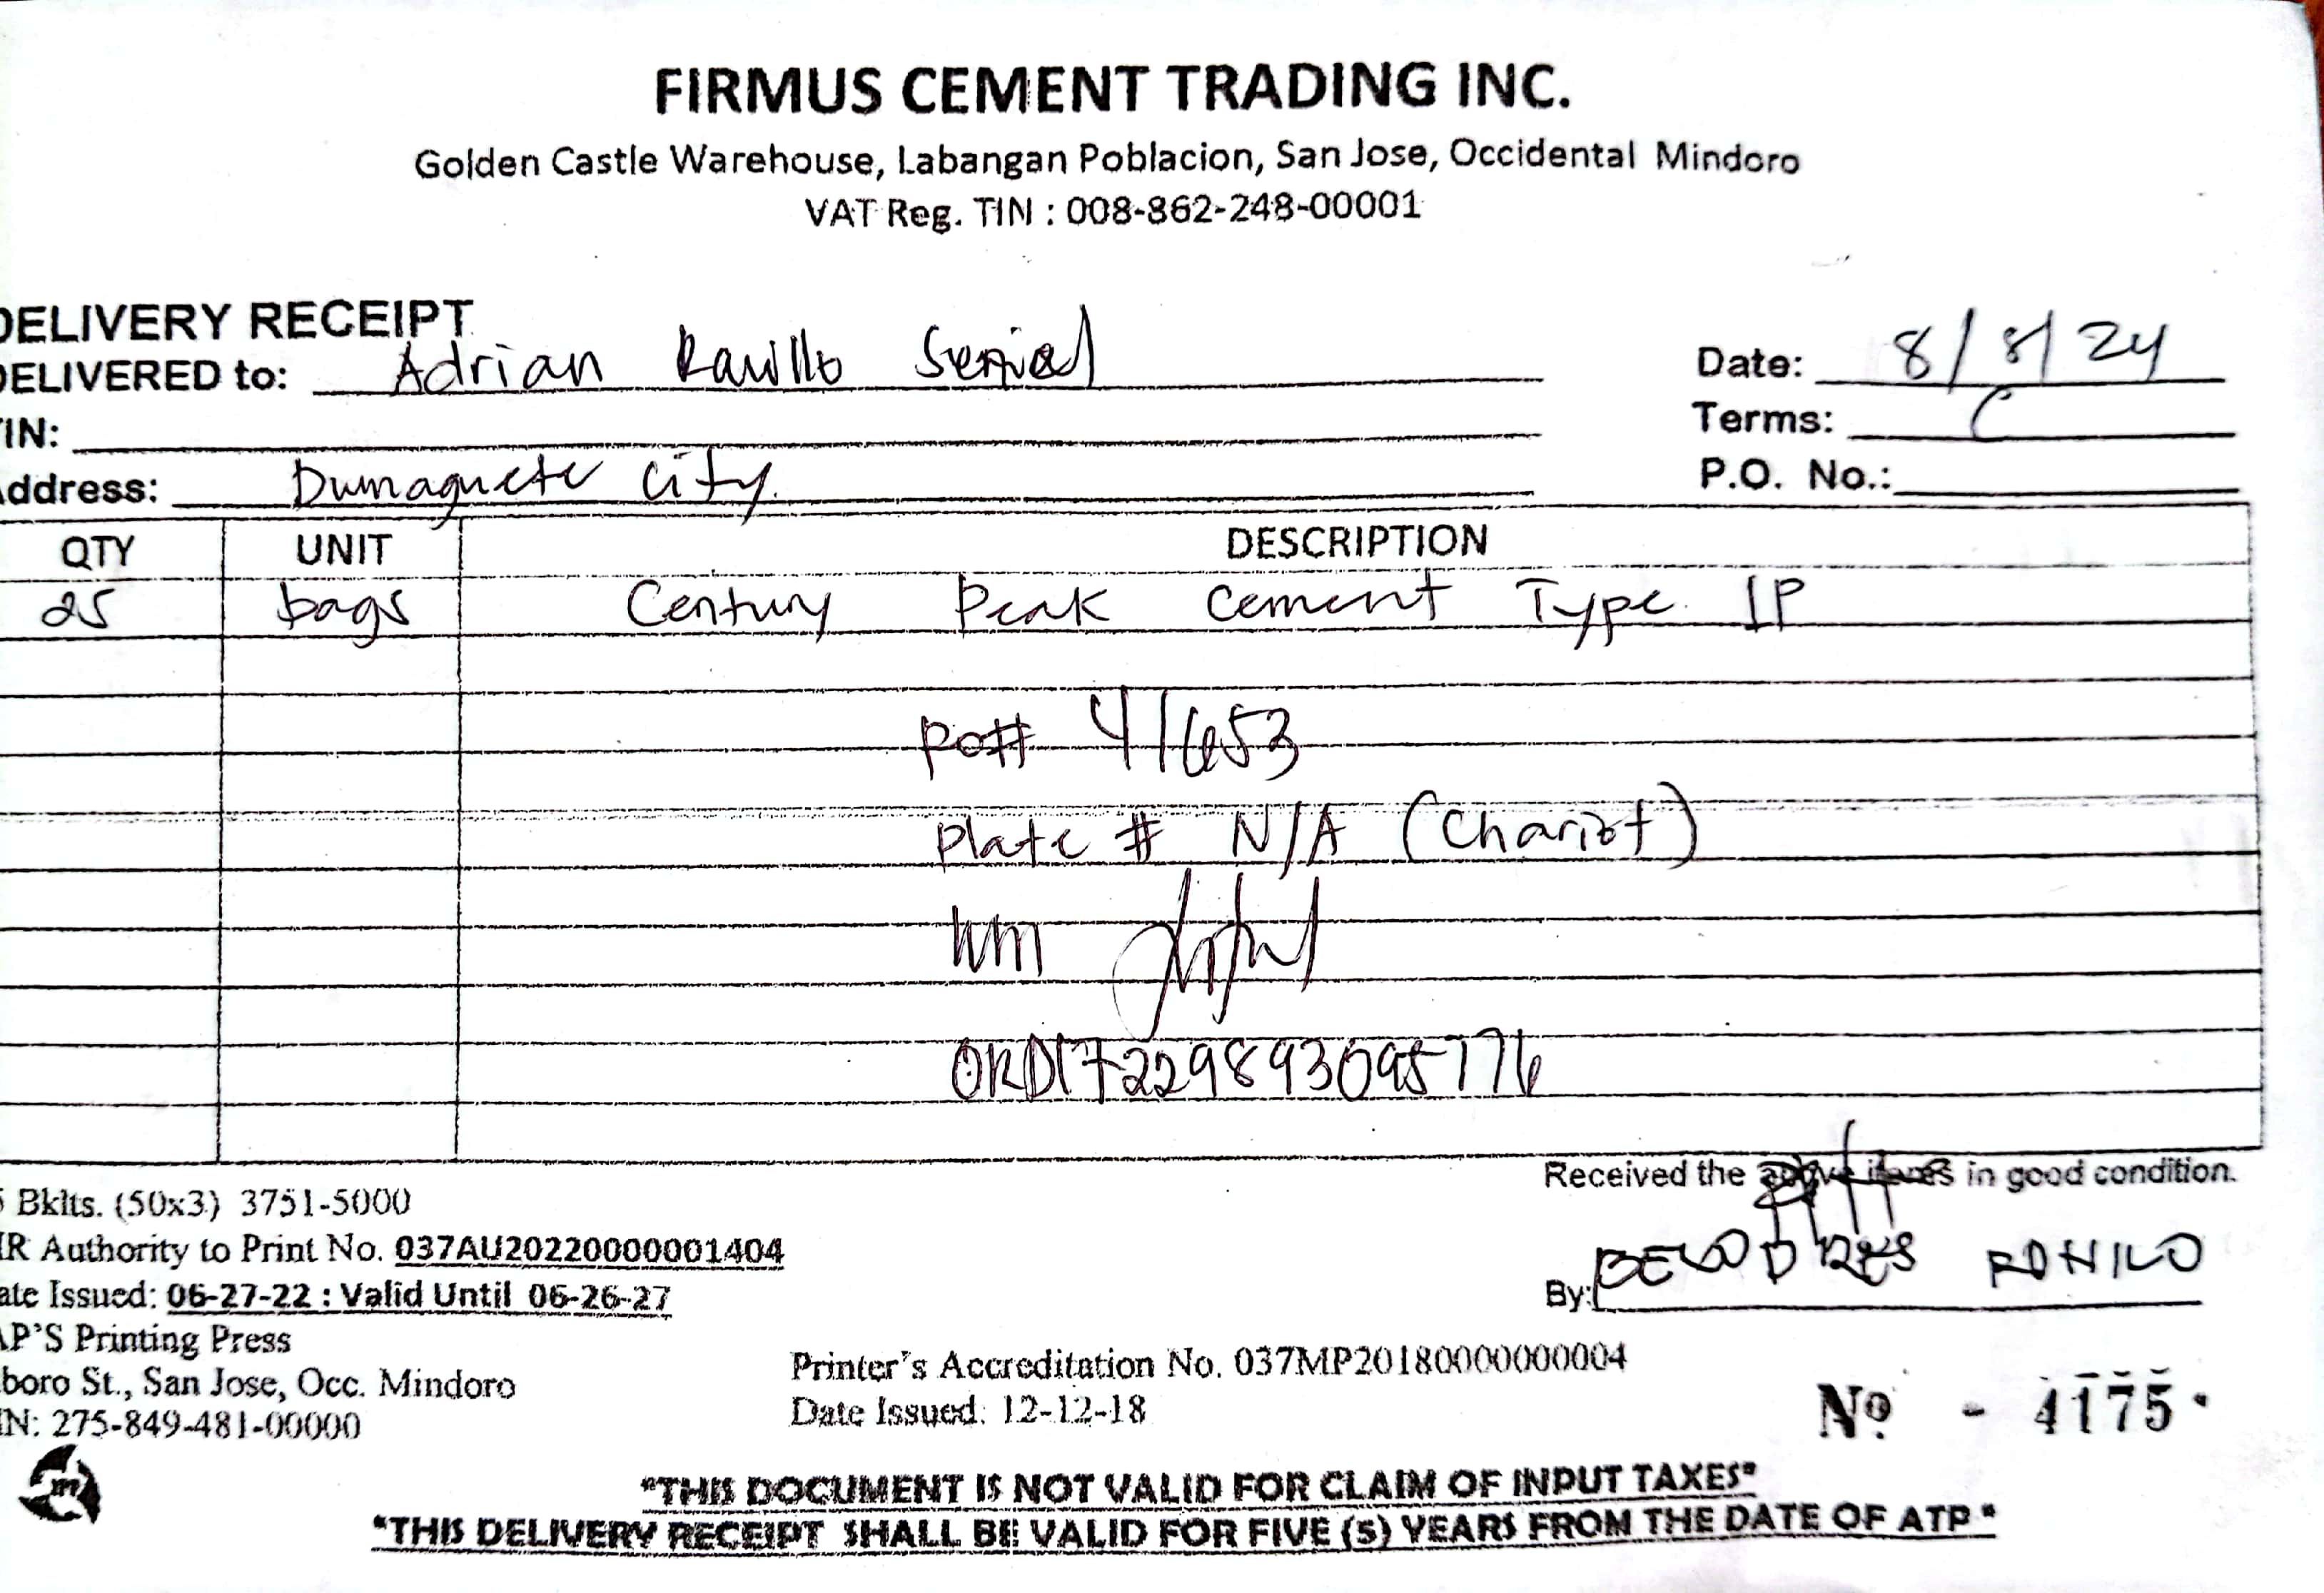 FIRMUS CEMENT TRADING INC.
Golden Castle Warehouse, Labangan Poblacion, San Jose, Occidental Mindoro
VAT Reg. TIN : 008-862-248-00001
DELIVERY RECEIPT
DELIVERED to: Adrian
Date: 8/8/24
TIN:
Terms: C
Address: Dumaguete City.
P.O. No.:
QTY UNIT DESCRIPTION
25 bags Century Peak Cement Type 1P
po# 41653
plate # N/A (Chariot)
ORD17229893095776
Received the above items in good condition.
Bklts. (50x3) 3751-5000
IR Authority to Print No. 037AU20220000001404
ate Issued: 06-27-22 : Valid Until 06-26-27
By:
AP'S Printing Press
boro St., San Jose, Occ. Mindoro
IN: 275-849-481-00000
Printer's Accreditation No. 037MP20180000000004
Date Issued: 12-12-18
No - 4175
"THIS DOCUMENT IS NOT VALID FOR CLAIM OF INPUT TAXES"
"THIS DELIVERY RECEIPT SHALL BE VALID FOR FIVE (5) YEARS FROM THE DATE OF ATP"